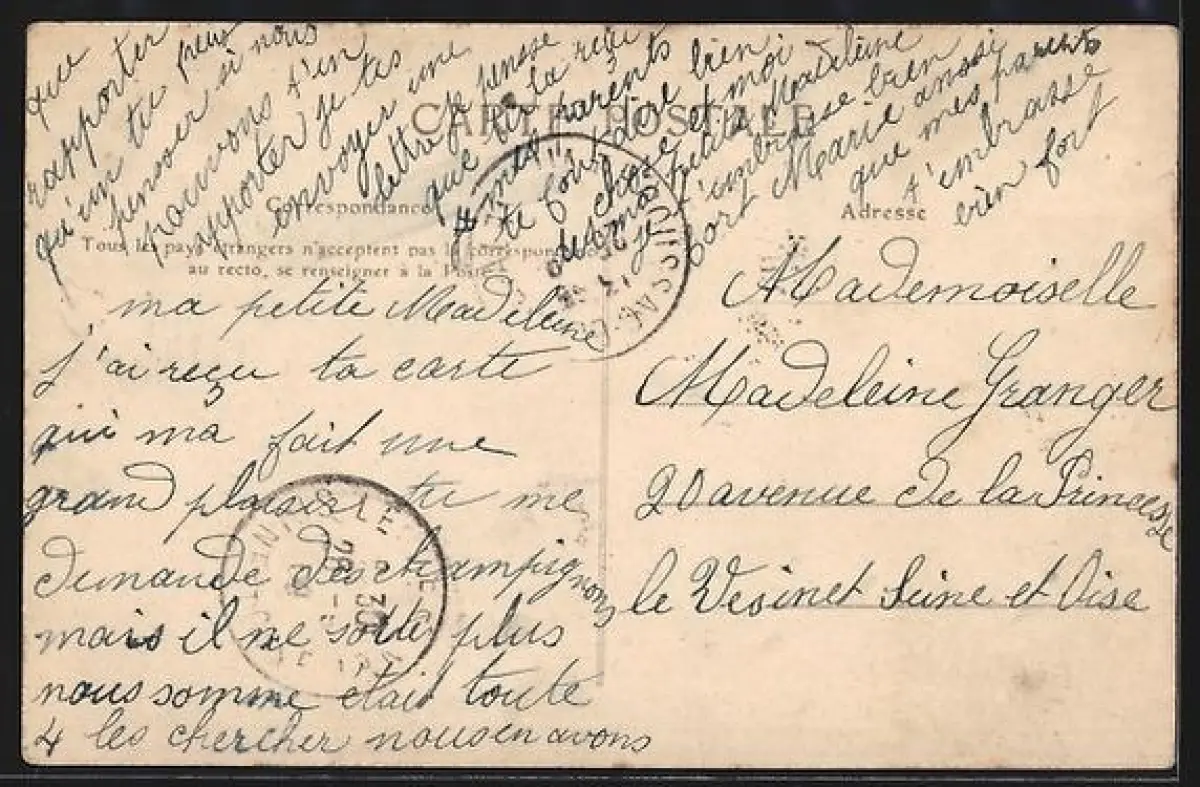 CARTE POSTALE
Correspondance
Tous les pays étrangers n'acceptent pas la correspondance
au recto, se renseigner à la Poste
Adresse
ma petite Madeleine
j'ai reçu ta carte
qui ma fait une
grand plaisir tu me
demande des champignons
mais il ne sortes plus
nous somme était toute
4 les chercher nous en avons
que
rapporter
qu'un tu peux
penser si nous
pouvons t'en
apporter je tes
envoyer une
lettre je pensse
que tu la reçu
mes parents
te font dire bien
chose et moi
ausi ma petite Madeleine
je t'embrasse bien
fort Marie ansi
que mes parents
t'embrasse
bien fort
Mademoiselle
Madeleine Granger
20 avenue de la Princesse
le Vésinet Seine et Oise